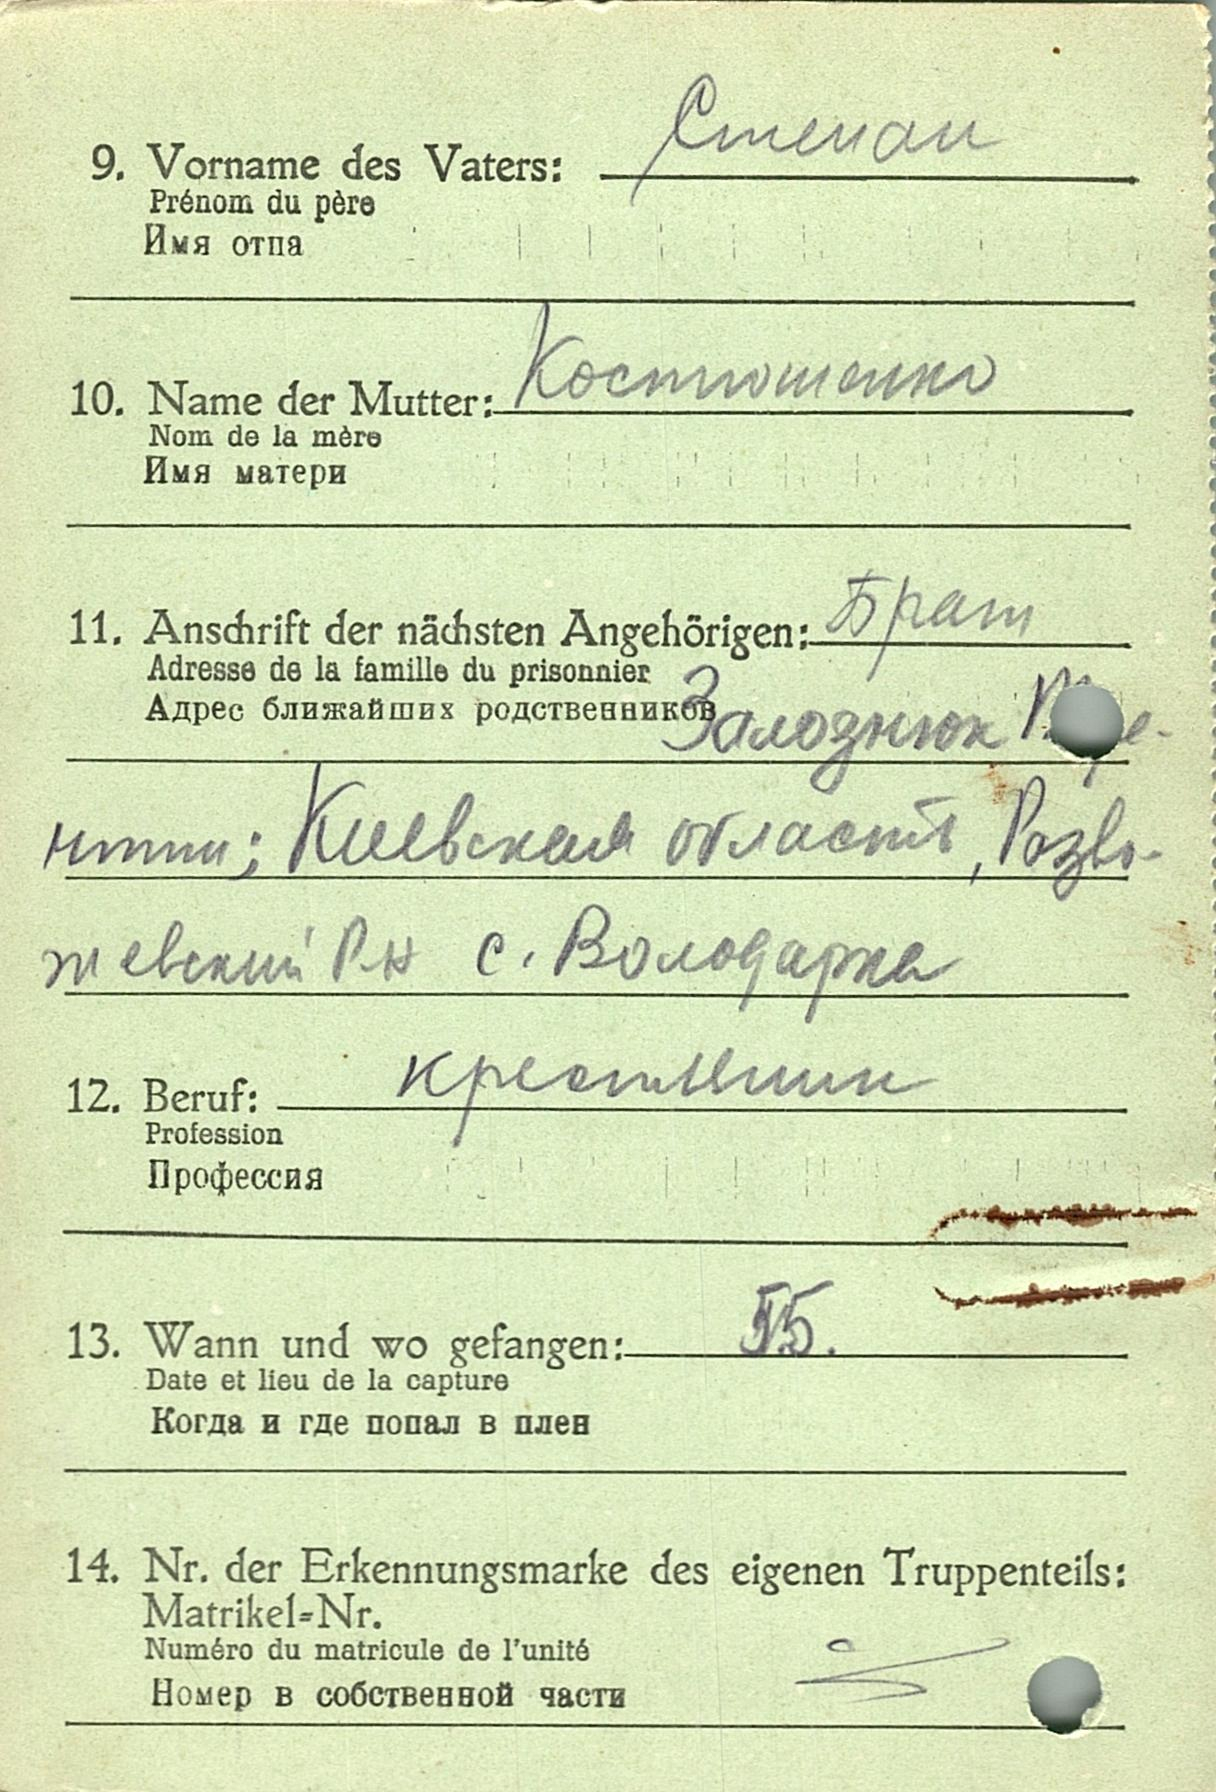 9. Vorname des Vaters: Степан
Prénom du père
Имя отца
10. Name der Mutter: Костюшенко
Nom de la mère
Имя матери
11. Anschrift der nächsten Angehörigen: Брат
Adresse de la famille du prisonnier
Адрес ближайших родственников Залознюк
Киевская область, Розво-
жевский Р-н с. Володарка
12. Beruf: крестьянин
Profession
Профессия
13. Wann und wo gefangen:
Date et lieu de la capture
Когда и где попал в плен
14. Nr. der Erkennungsmarke des eigenen Truppenteils:
Matrikel-Nr.
Numéro du matricule de l'unité
Номер в собственной части